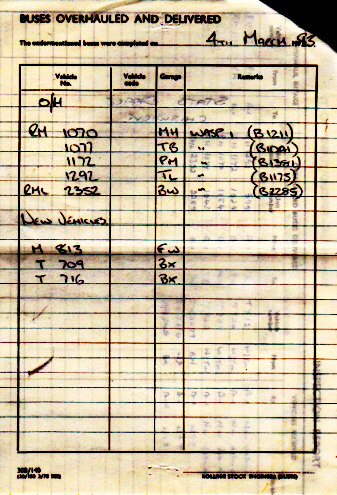 BUSES OVERHAULED AND DELIVERED
The undermentioned buses were completed on 4TH MARCH 1983
Vehicle No. Vehicle code Garage Remarks
O/H
RM 1070 MH WASP 1 (B1211)
1077 TB " 
1172 PM " (B1381)
1292 TL " (B1175)
RML 2352 BW " (B2285)
NEW VEHICLES
M 813 EW
T 709 BX
T 716 BX
ROLLING STOCK ENGINEER (BUSES)